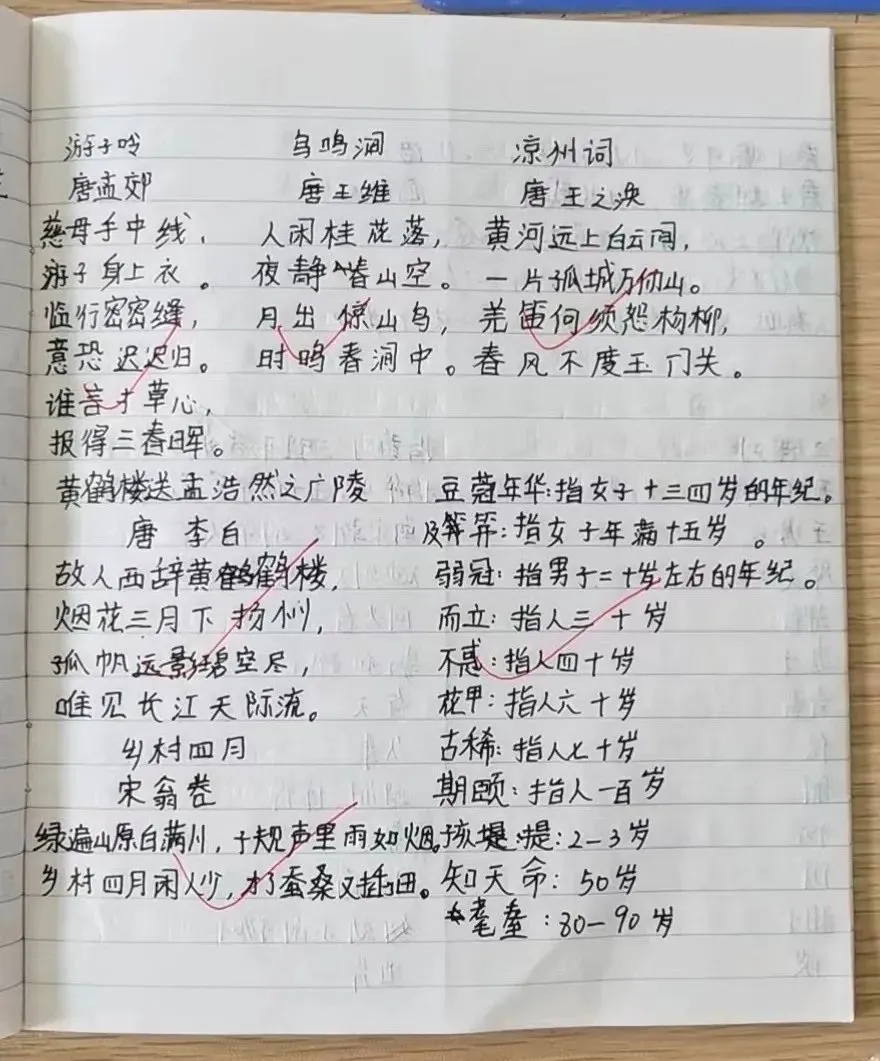 游子吟
唐孟郊
慈母手中线,
游子身上衣。
临行密密缝,
意恐迟迟归。
谁言寸草心,
报得三春晖。
鸟鸣涧
唐王维
人闲桂花落,
夜静春山空。
月出惊山鸟,
时鸣春涧中。
凉州词
唐王之涣
黄河远上白云间,
一片孤城万仞山。
羌笛何须怨杨柳,
春风不度玉门关。
黄鹤楼送孟浩然之广陵
唐 李白
故人西辞黄鹤楼,
烟花三月下扬州,
孤帆远影碧空尽,
唯见长江天际流。
乡村四月
宋翁卷
绿遍山原白满川,子规声里雨如烟。
乡村四月闲人少,才了蚕桑又插田。
豆蔻年华:指女子十三四岁的年纪。
及笄:指女子年满十五岁。
弱冠:指男子二十岁左右的年纪。
而立:指人三十岁
不惑:指人四十岁
花甲:指人六十岁
古稀:指人七十岁
期颐:指人一百岁
孩提:2-3岁
知天命:50岁
耄耋:80-90岁